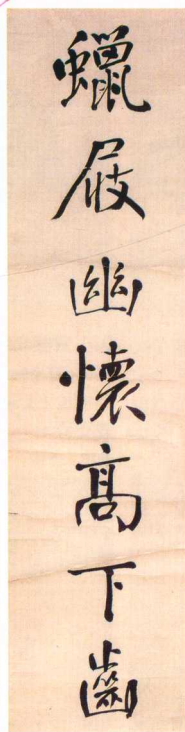 蠟屐幽懷高下齒